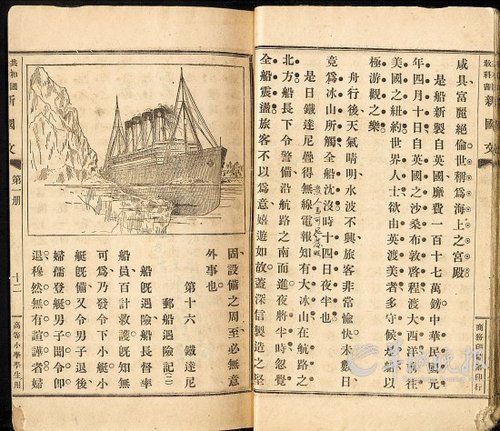 教科書 新國文
咸具富麗絕倫世稱爲海上之宮殿
是船新製自英國靡費一百十七萬鎊中華民國元
年四月十日自英國之沙桑布敦啓程渡大西洋前往
美國之紐約世界人士欲由英渡美者多守候是船以
極游觀之樂
舟行後天氣晴明水波不興旅客非常愉快未數日
竟爲冰山所觸全船沈沒時十四日夜半也
是日鐵達尼疊得無線電報知有大冰山在航路之
北方船長下令警備沿航路之南而進夜將半時忽覺
全船震盪旅客不以爲意嬉遊如故蓋深信製造之堅
固設備之周至必無意
外事也
第十六 鐵達尼
郵船遇險記(二)
船既遇險船長督率
船員百計救護既知無
可爲乃發令下小艇小
艇既備又令男子退後
婦孺登艇男子聞令卽
退穆然無有諠譁者婦
共和國 新國文 第一册 十二 高等小學學生用